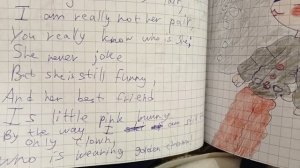 I am really not her pair,
You really know who is she,
She never joke
But she is still funny,
And her best friend
Is little pink bunny
By the way I am still
only clown,
who is wearing golden crown